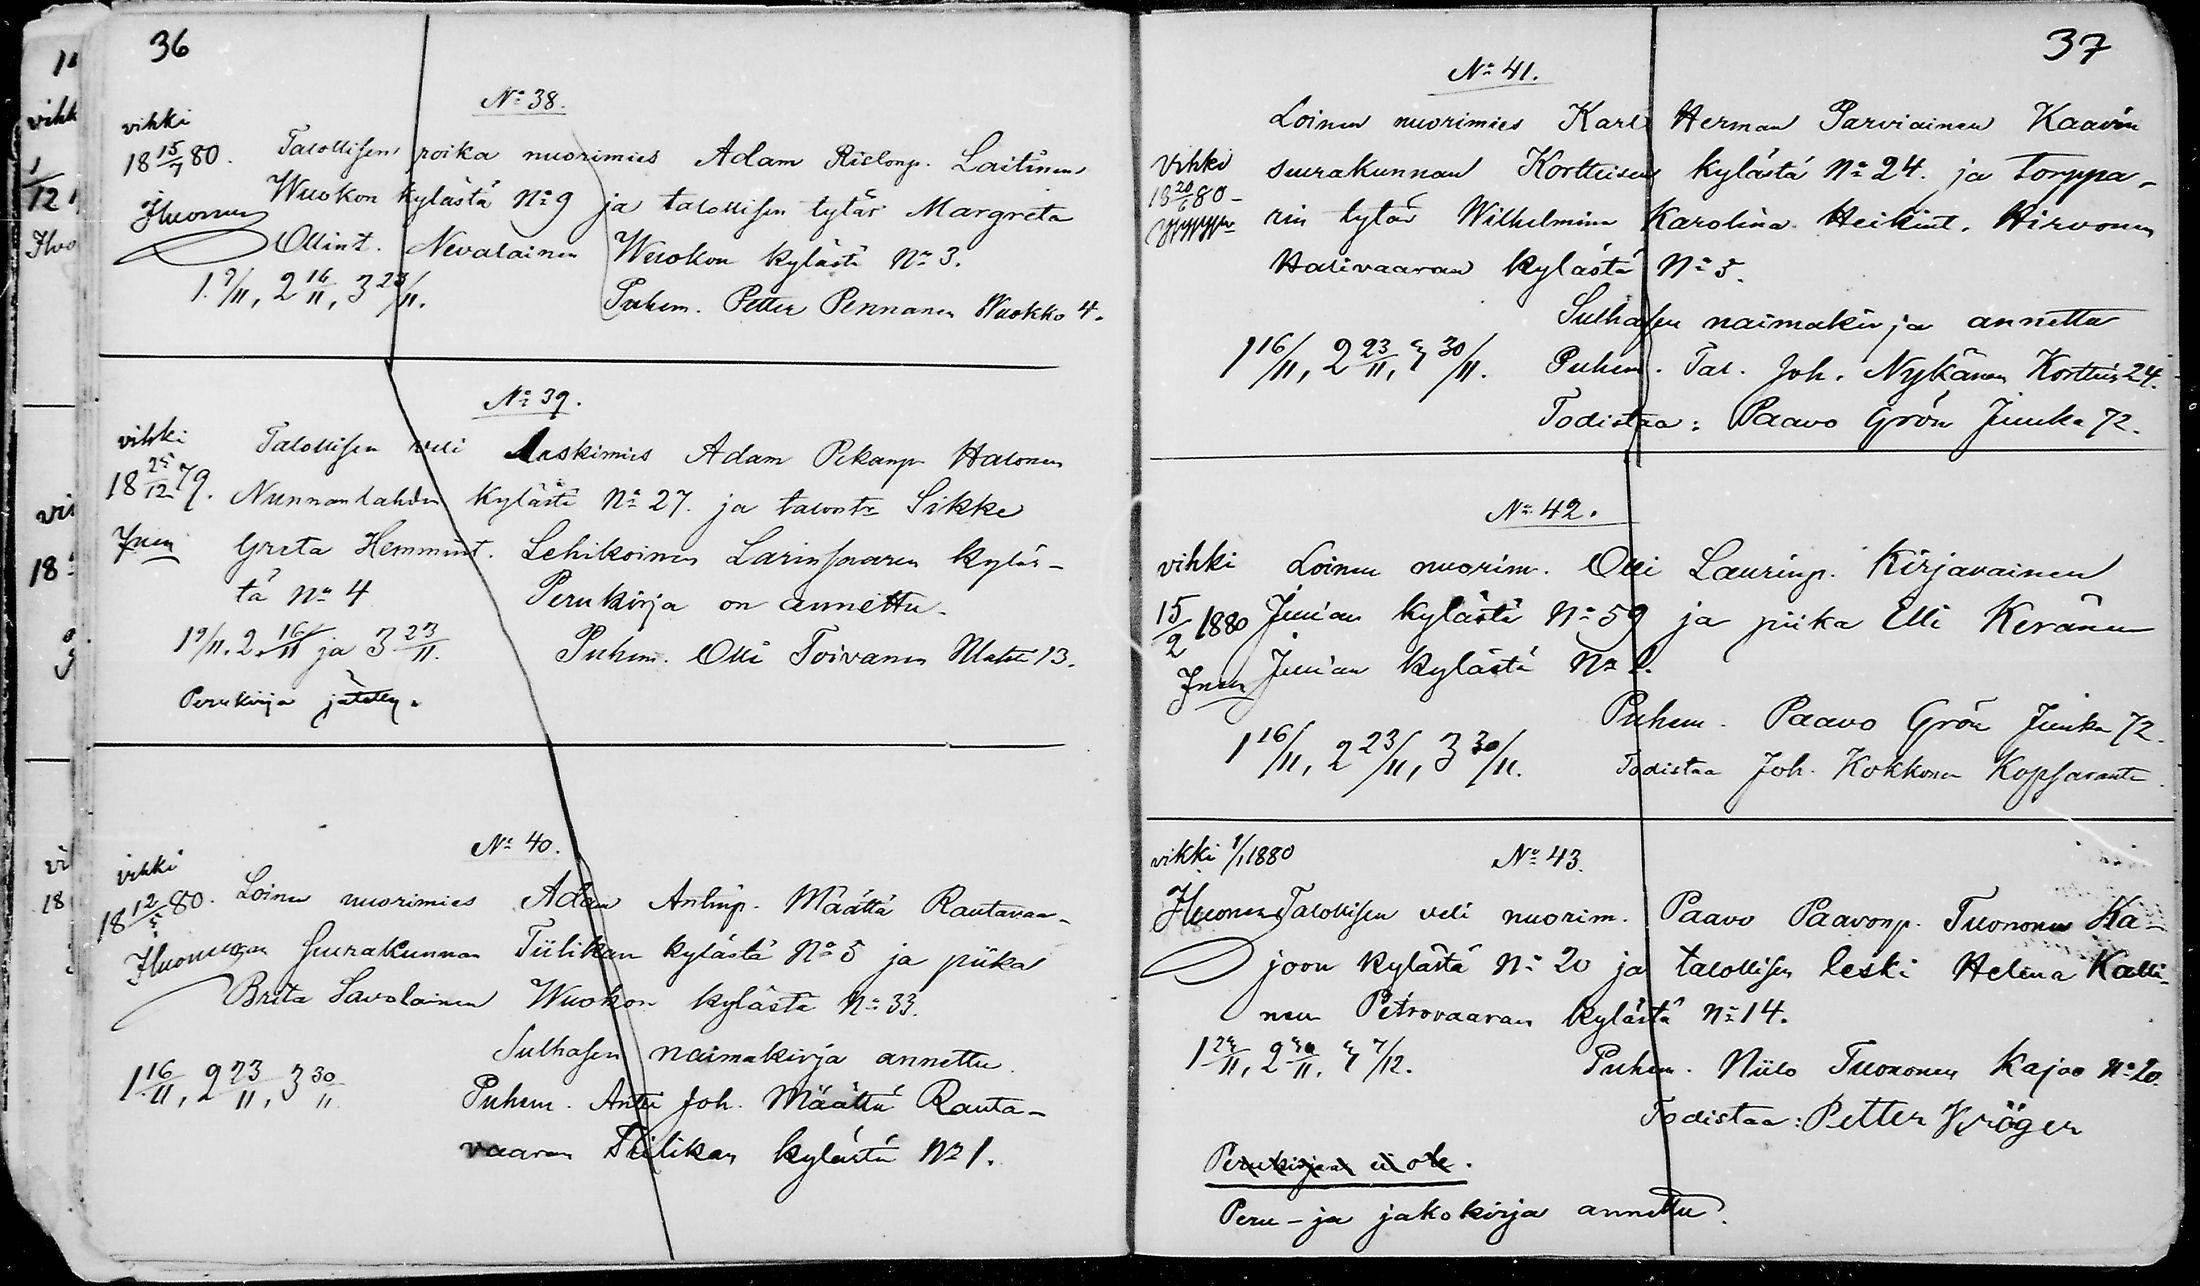 36
No 38.
vihki
18 15/7 80.
Talollisen poika nuorimies Adam Laitinen
Wuokon kylästä No 9 ja talollisen tytär Margreta
Ollint. Nevalainen Wuokon kylästä No 3.
1. 9/11, 2 16/11, 3 23/11.
Puhem. Petter Pennanen Wuokko 4.
No 39.
vihki
18 25/12 79.
Talollisen veli leskimies Adam Pekanp. Halonen
Nunnanlahden kylästä No 27. ja talont. Sikke
Greta Hemmint. Lehikoinen Larinsaaren kyläs-
tä No 4
Perukirja on annettu.
1 9/11. 2. 16/11 ja 3 23/11.
Puhem. Olli Toivanen 13.
Perukirja jätetty.
No 40.
vihki
18 12/5 80.
Loinen nuorimies Adam Antinp. Määttä Rautavaa-
ran seurakunnan Tiilikan kylästä No 5 ja piika
Brita Savolainen Wuokon kylästä No 33.
Sulhasen naimakirja annettu.
1 16/11, 2 23/11, 3 30/11.
Puhem. Antti Joh. Määttä Rauta-
vaaran Tiilikan kylästä No 1.
37
No 41.
Loinen nuorimies Karl Herman Parviainen Kaavin
vihki
18 20/6 80-
seurakunnan Kortteisen kylästä No 24. ja torppa-
rin tytär Wilhelmina Karolina Heikint. Hirvonen
Halivaaran kylästä No 5.
Sulhasen naimakirja annettu
1 16/11, 2 23/11, 3 30/11.
Puhem. Tal. Joh. Nykänen Kortteis 24.
Todistaa: Paavo Grön Juuka 72.
No 42.
vihki
15/2 1880
Loinen nuorim. Olli Laurinp. Kirjavainen
Juuan kylästä No 59 ja piika Elli Keränen
Juuan kylästä No
Puhem. Paavo Grön Juuka 72.
1 16/11, 2 23/11, 3 30/11.
Todistaa Joh. Kokkonen
vihki 1/1 1880
No 43.
Talollisen veli nuorim. Paavo Paavonp. Tuononen Ka-
joon kylästä No 20 ja talollisen leski Helena Kalli-
nen Petrovaaran kylästä No 14.
1 23/11, 2 30/11, 3 7/12.
Puhem. Niilo Tuononen Kajoo No 20.
Todistaa: Petter Kröger
Perukirjaa ei ole.
Peru- ja jakokirja annettu.